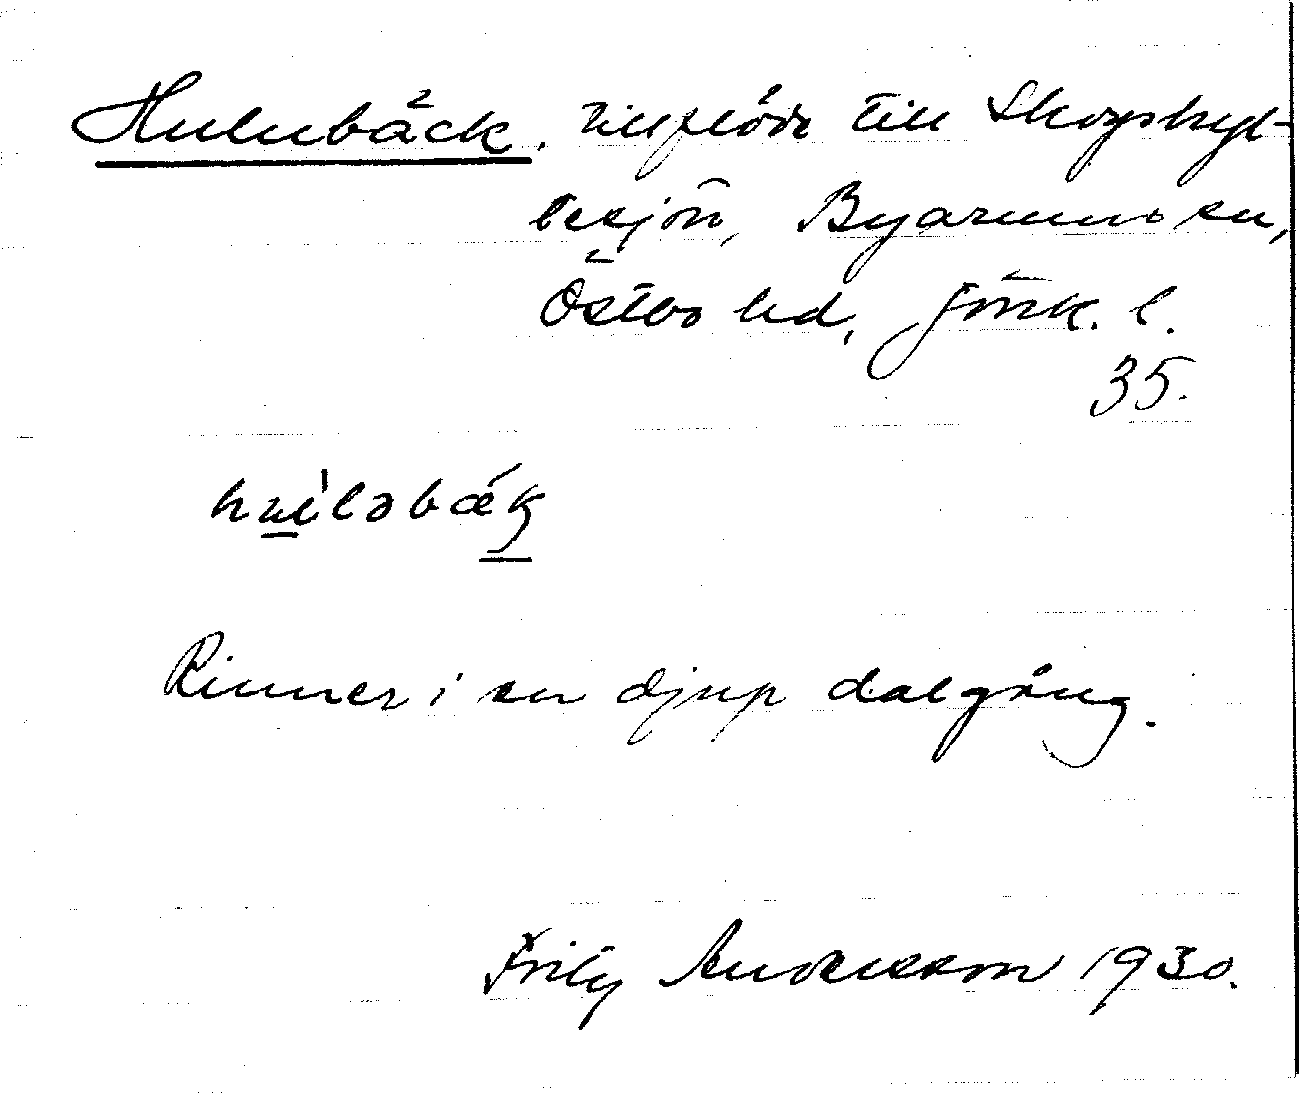 Hulubäck, tillflöde till Skogshyl-
tesjön, Byarums sn,
Östbo hd, Jönk. l.
35.
hu̲ìləbǽk̲
Rinner i en djup dalgång.
Frity Andersson 1930.